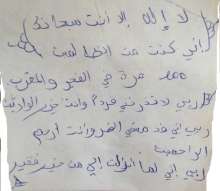 لا إله إلا أنت سبحانك
اني كنت من الظالمين
مرة في الفجر والمغرب
ربي لا تذرني فرداً وانت خير الوارثين
ربي اني مسني الضر وانت ارحم
الراحمين
ربي إني لما أنزلت إلي من خير فقير